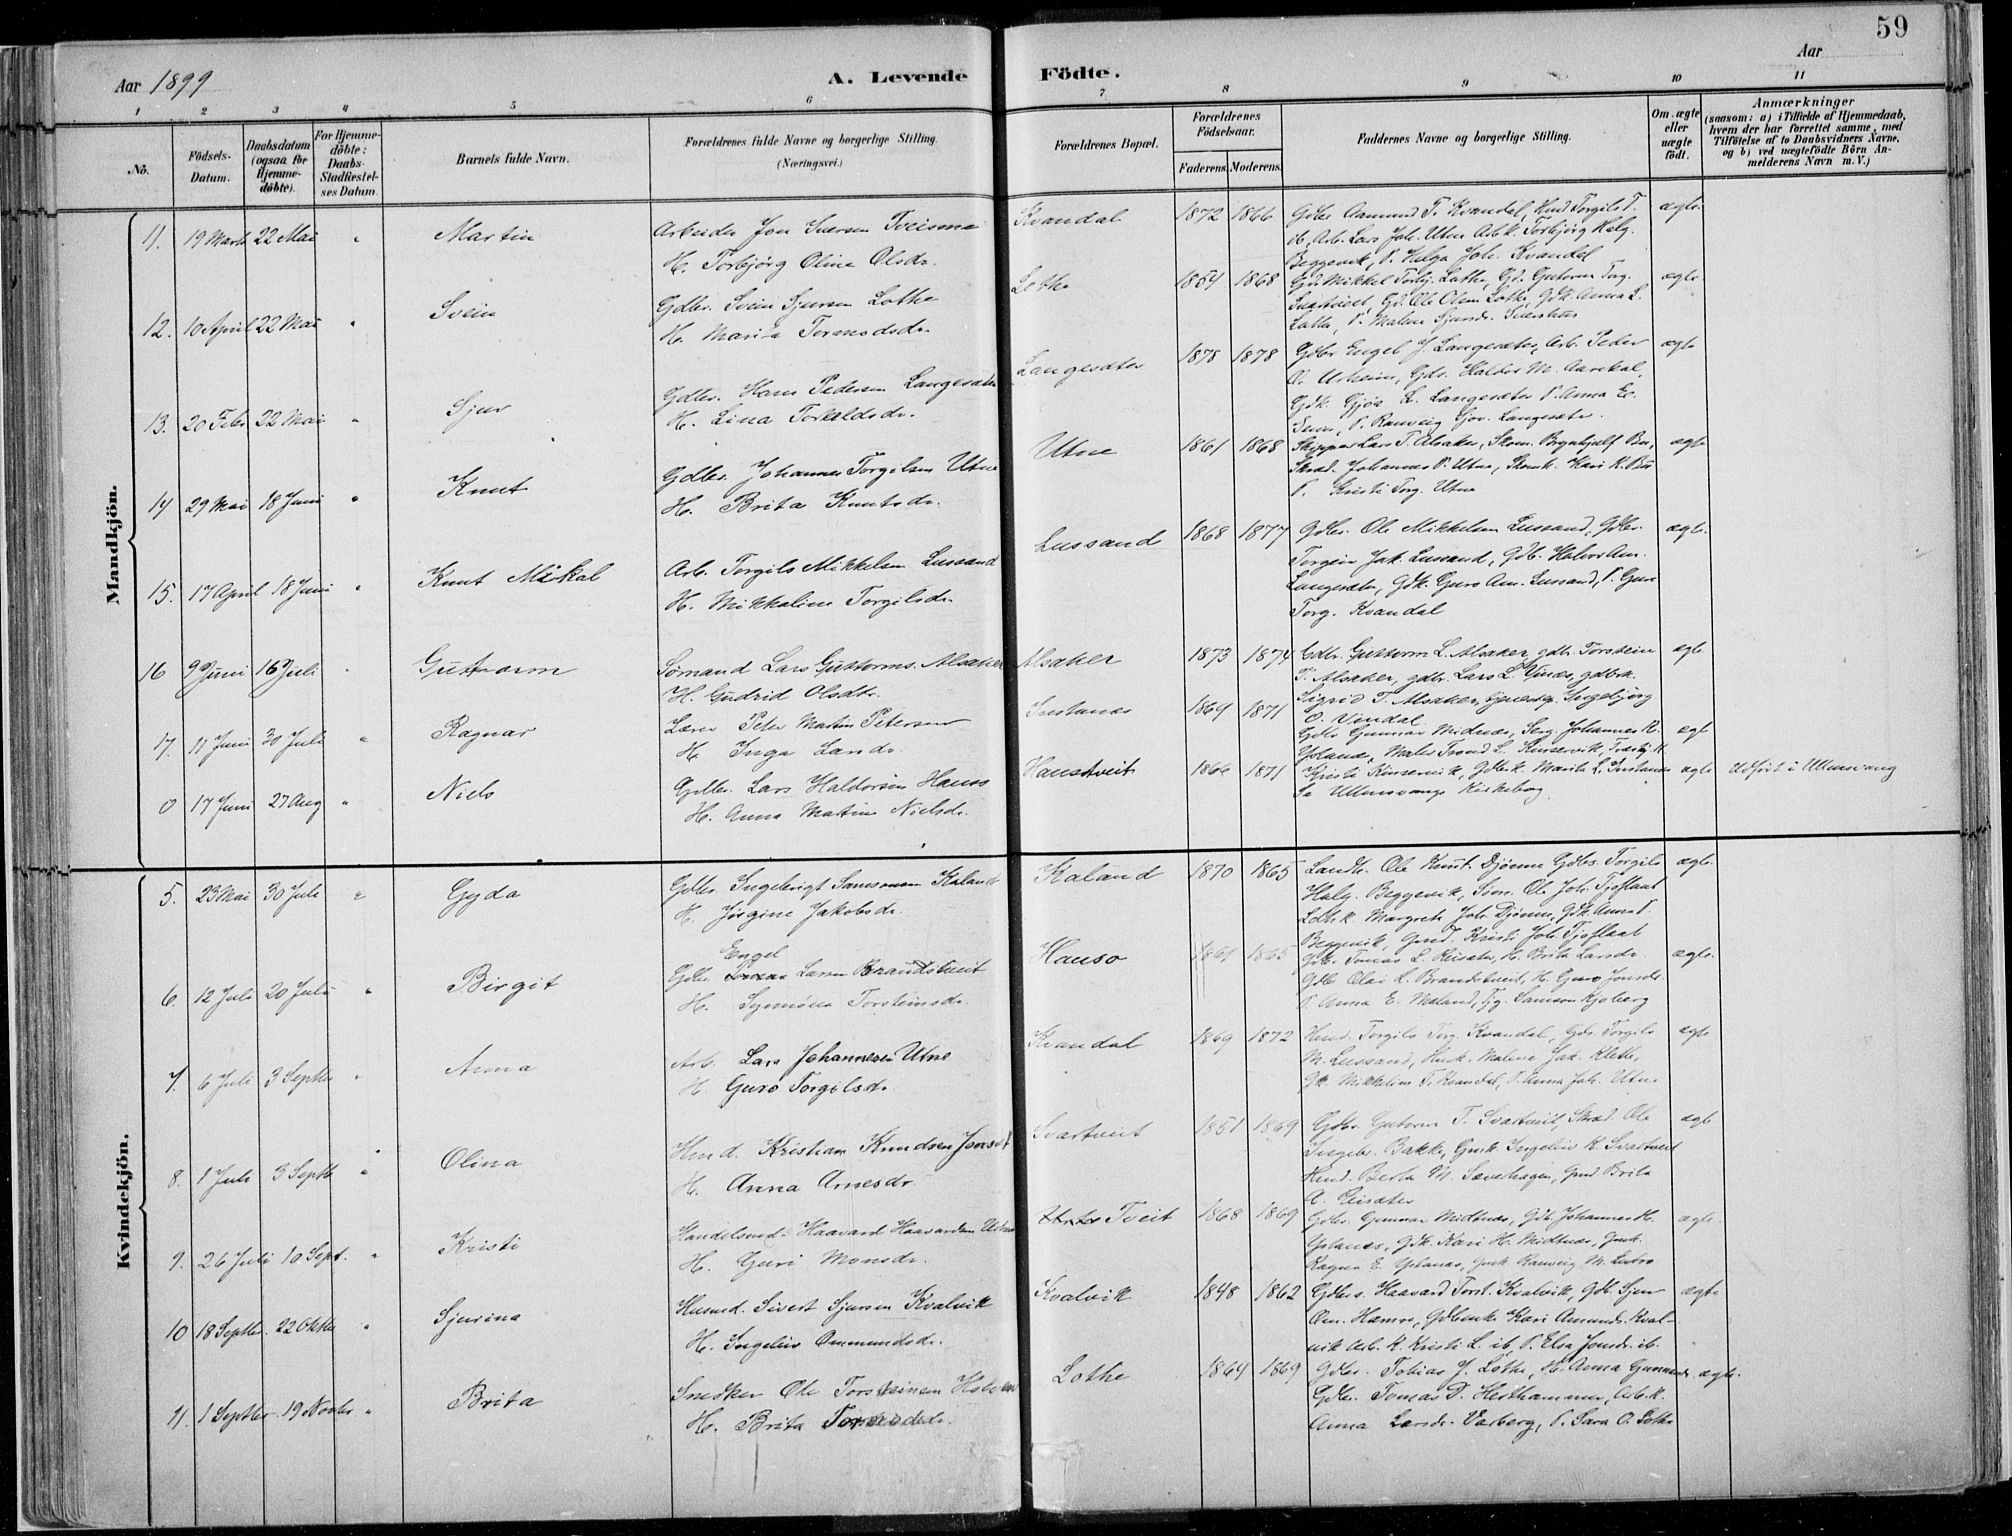 59
Aar 1899
A. Levende Födte.
Aar
1 2 3 4 5 6 7 8 9 10 11
No.
Födsels-Datum.
Daabsdatum (ogsaa for Hjemme-döbte).
For Hjemme-döbte: Daabs-Stadfæstel-ses Datum.
Barnets fulde Navn.
Forældrenes fulde Navne og borgerlige Stilling. (Næringsvei.)
Forældrenes Bopæl.
Forældrenes Födselsaar.
Faderens. Moderens.
Faddernes Navne og borgerlige Stilling.
Om ægte eller uægte födt.
Anmærkninger (saasom: a) i Tilfælde af Hjemmedaab, hvem der har forrettet samme, med Tilföielse af to Daabsvidners Navne, og b) ved uægtefödte Börn An-melderens Navn m. V.)
Mandkjön.
11. 19 Marts 22 Mai " Martin
Arbeider Jon Iversen Tveisme
H. Torbjörg Oline Olsdr.
Kvandal 1872 1866
Gdbr Aamund T. Kvandal, Hmd Torgils T.
ib, Arb. Lars Joh. Utne Arb.k. Torbjörg Helg.
Beggevik, P. Helga Joh. Kvandal
ægte.
12. 10 April 22 Mai " Svein
Gdbr. Svein Sjursen Lothe
H. Maria Tormodsdr.
Lothe 1854 1868
Gd. Mikkel Torbj. Lothe, Gd. Gutorm Torg.
Svartveit, Gd. Ole Olsen Lothe, Gdk. Anna L.
Lothe, P. Malene Sjursdr.
ægte
13. 20 Febr 22 Mai " Sjur
Gdbr. Hans Pedersen Langesæter
H. Lina Torkeldsdr.
Langesæter 1878 1878
Gdbr Engel J Langesæter, Arb. Peder
O. Urheim, Gds. Haldor M. Aarekol,
Gdk. Gjöa L. Langesæter P. Anna E.
P. Ranveig Gjor. Langesæter.
ægte
14 29 Mai 18 Juni " Knut
Gdbr. Johannes Torgilsen Utne
H. Brita Knutsdr.
Utne 1861 1868
Skipper Lars T. Alsaker, Skom. Brynhjulf Bu,
Skræd. Johannes P. Utne, Skomk. Kari K. Bu
P. Kristi Torg. Utne
ægte
15. 17 April 18 Juni " Knut Mikal
Arb. Torgils Mikkelsen Lussand
H. Mikkaline Torgilsdr.
Lussand 1868 1877
Gdbr. Ole Mikkelsen Lussand, Gdbr.
Torgein Jak. Lussand, Gdb. Halvor Am.
Langesæter, Gdk. Guro Am. Lussand, P. Guro
Torg. Kvandal
ægte.
16 9 Juni 16 Juli " Guttorm
Sømand Lars Guttorms. Alsaker
H. Gudrid Olsdtr.
Alsaker 1873 1874
Gdbr. Guttorm L. Alsaker, gdbr. Torstein
T. Alsaker, gdbr. Lars L. Vines, gdbrk.
Sigrid T. Alsaker, tjenestp. Ingebjörg
O. Vindal.
ægte
17. 11 Juni 30 Juli " Ragnar
Lærer Peter Martin Petersen
H. Inga Larsdr.
Instanes 1869 1871
Gdbr Gunnar Midnæs, Serg. Johannes H.
Ystanæs, Maler Trond L. Kinservik,
Kristi Kinservik, Gdbrk. Marita L. Instanæs
ægte
0 17 Juni 27 Aug " Niels
Gdbr. Lars Haldorsen Hauso
H. Anna Martine Nielsdr.
Haustveit 1866 1871
Se Ullensvangs Kirkebog
ægte
Udfört i Ullensvang
Kvindekjön.
5. 23 Mai 30 Juli " Gyda
Gdbr. Ingebrigt Samsonsen Kaland
H. Jörgine Jakobsdr.
Kaland 1870 1865
Landh. Ole Knut. Djönne Gdbr. Torgils
Helg. Beggevik, Snes. Ole Joh. Tjoflaat
Ldhk. Margrete Joh. Djönne, Gdk. Anna P.
Beggevik, Gmd. Kristi Joh. Tjoflaat
ægte.
6. 12 Juli 20 Juli " Birgit
Engel
Gdbr. Larsen Brandstveit
H. Synnöva Torsteinsdr.
Hauso 1861 1865
Gdb. Tomas L. Reisæter, H. Brita Larsdr.
Gdb Olav L. Brandstveit, H. Guro Jonsdr.
P. Anna E. Mæland, Tjg. Samson Kjoberg
ægte.
7. 6 Juli 3 Septbr " Anna
Arb. Lars Johannesen Utne
H. Guro Torgilsdr.
Kvandal 1869 1872
Hmd. Torgils Torg. Kvandal, Gdr Torgils
M. Lussand, Husk. Malene Jak. Kleth,
Gk. Mikkeline T. Kvandal, P. Anna Joh. Utne
ægte
8. 1 Juli 3 Septb " Olina
Hmd. Kristian Knudsen
H. Anna Arnesdr.
Svartveit 1851 1869
Gdbr. Gutorm T. Svartveit, Skræd. Ole
Ingebr. Bakke, Gmk. Ingeliv K. Svartveit
Hmd. Berta M. Sævehagen, Gmd Brita
A. Reisæter
ægte
9. 26 Juli 10 Sept. " Kristi
Handelsmd. Haavard Haavardsen
H. Guri Monsdr.
Tveit 1868 1869
Gdbr. Gunnar Midtnæs, Gdb. Johannes H.
Ystanæs, Gdk. Kari H. Midtnæs, Gmk.
Ragna E. Ystanæs, Gmk Ranveig M. Lutro
ægte.
10 18 Septbr. 22 Oktbr " Sjurina
Husmd. Sivert Sjursen Kvalvik
H. Ingeliv Ommundsdr.
Kvalvik 1848 1862
Gdbr. Haavard Torst. Kvalvik, Gdb. Sjur
Om. Hamre, Gdbrenke Kari Amunds. Kval-
vik Arb. K. Kristi L. ib, P. Elsa Jonsdr. ib.
ægte
11. 1 Septbr. 19 Novbr " Brita
Snedker Ole Torsteinsen
H. Brita
Lothe 1864 1869
Gdbr. Tobias J. Lothe, H. Anna Gunnarsdr.
Gdbr. Tomas T. Hesthammer, Arb.k.
Anna Larsdr. Varberg, P. Sara O. Lothe
ægte.